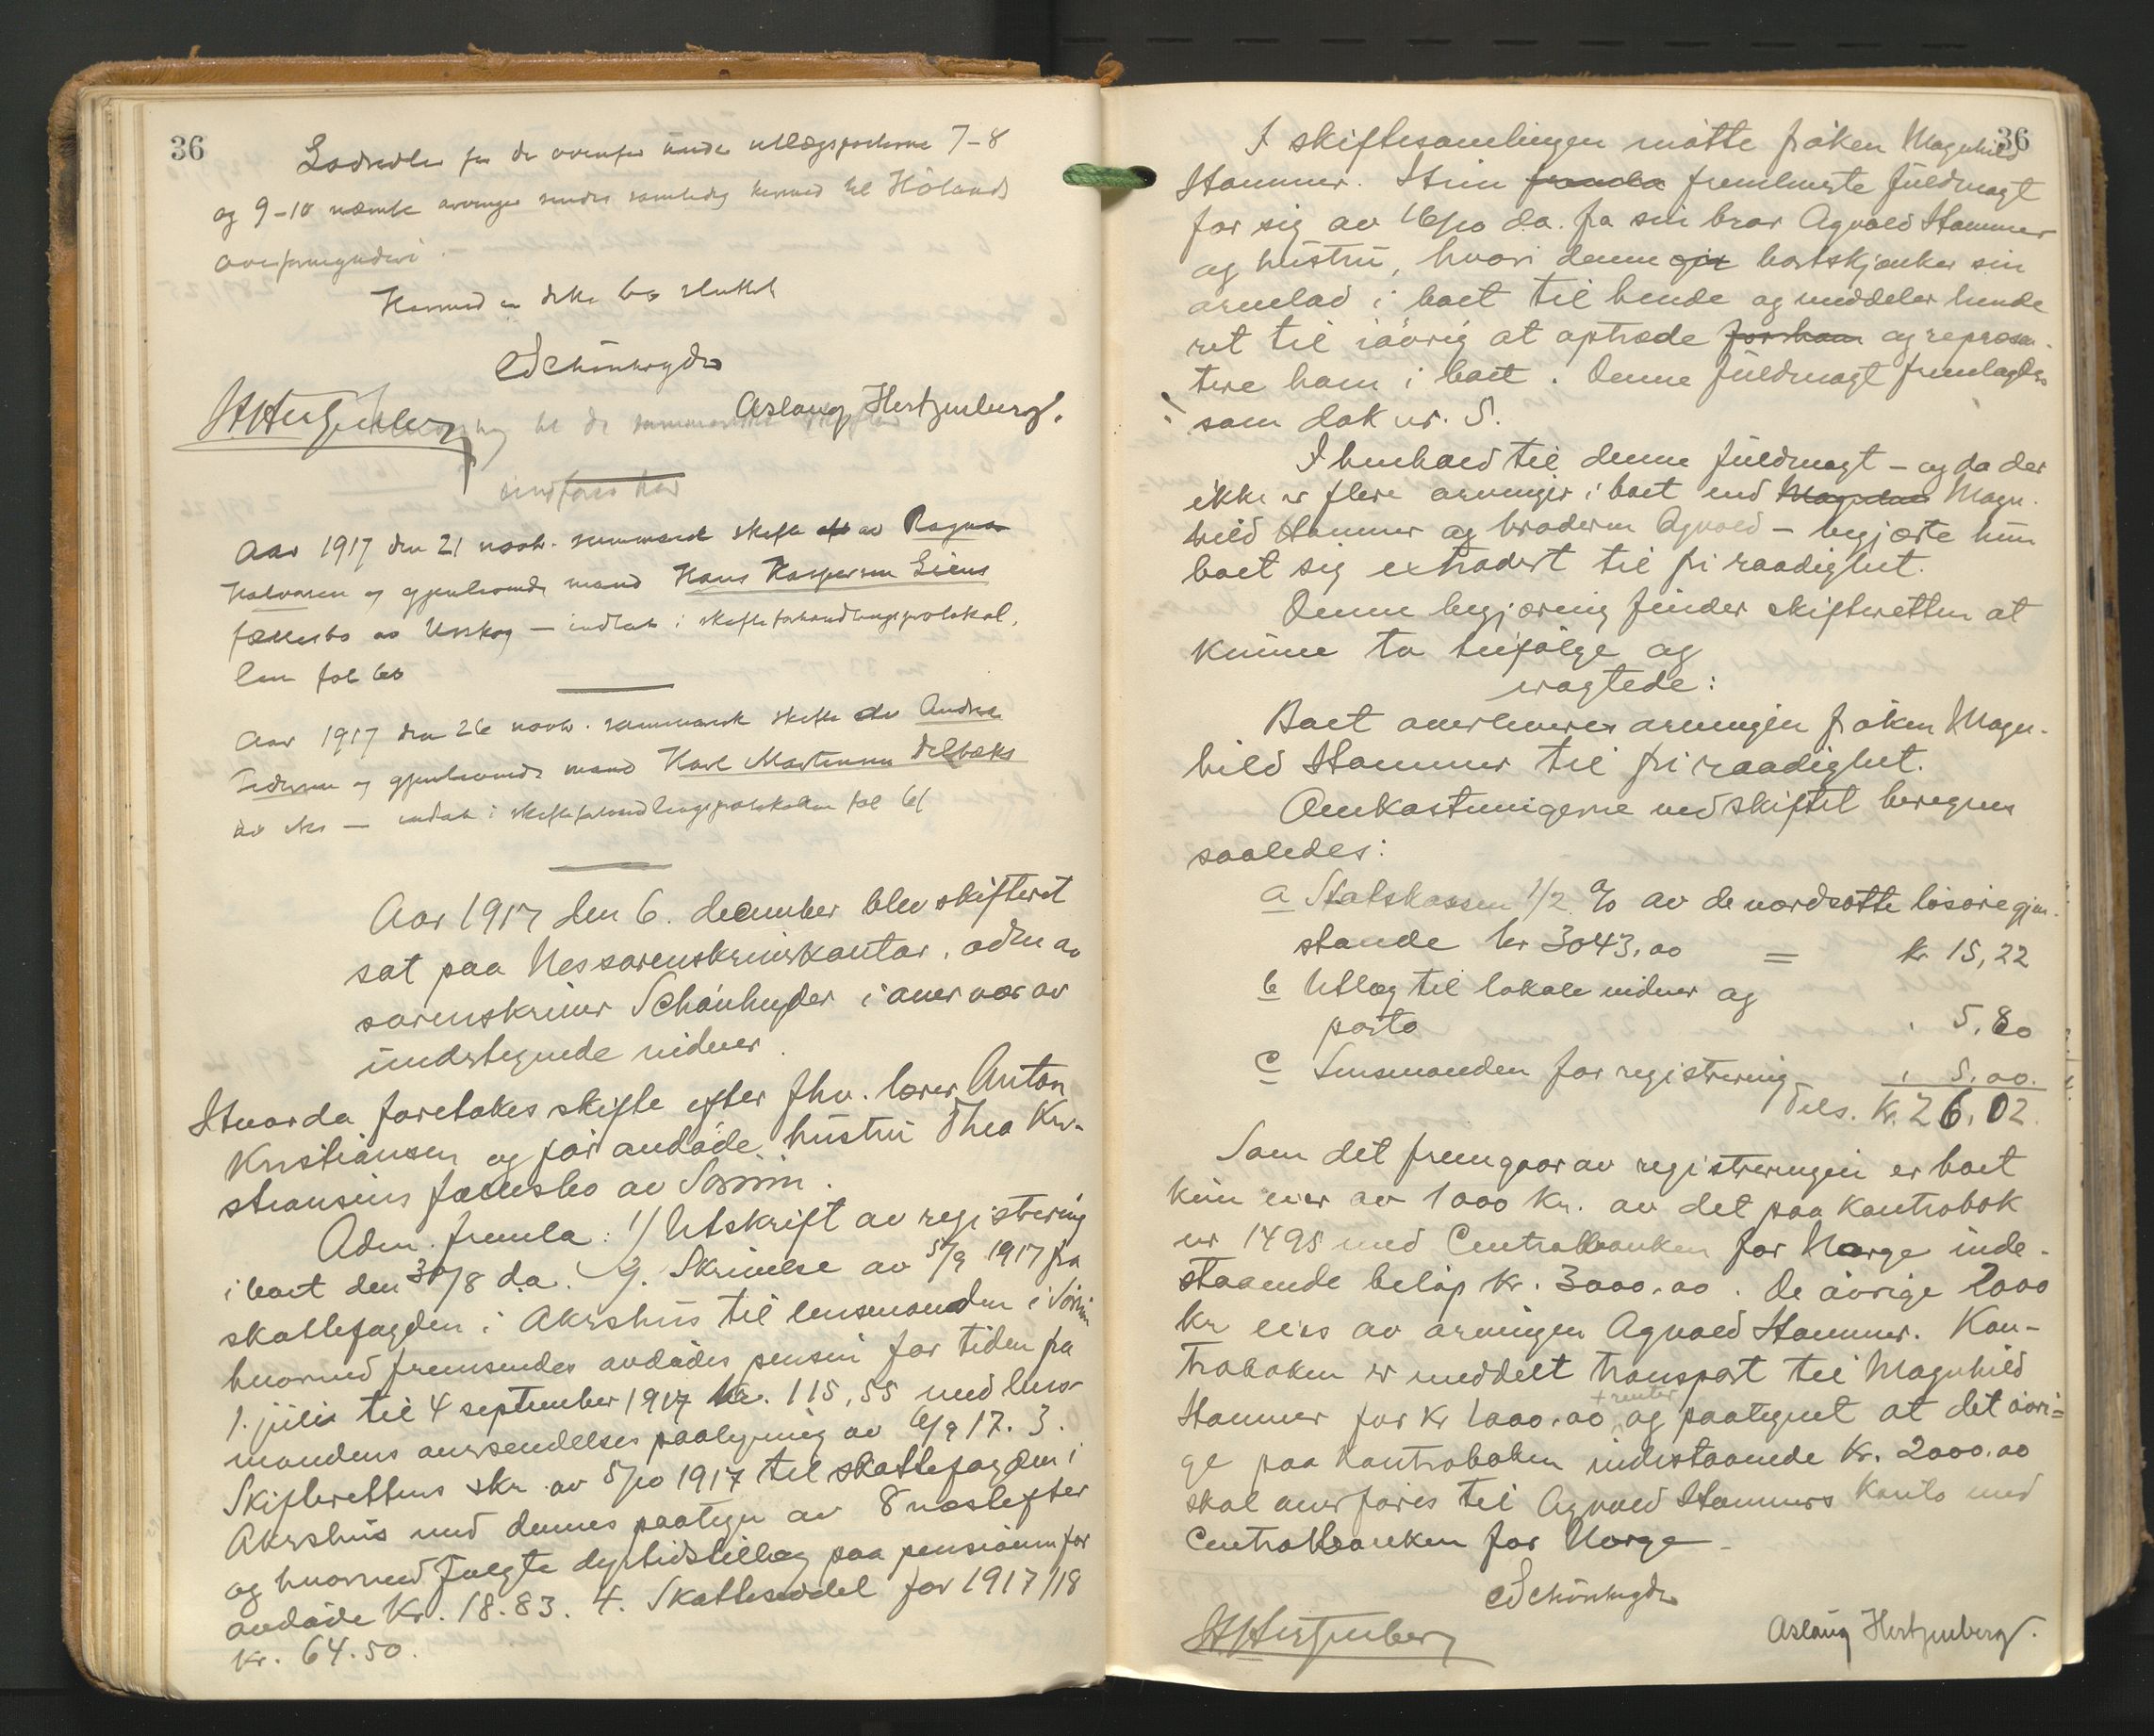 36
Lodsedler for de ovenfor under utlægsposterne 7-8
og 9-10 nævnte arvinger sendes samtidig hermed til Hølands
overformynderi.
Hermed er dette bo sluttet
Schönheyder
HHertzenberg Aslaug Hertzenberg.
Aar 1917 den 21 novbr. summarisk skifte av Ragna
Halvorsen og gjenlevende mand Hans Kaspersen Liens
fællesbo av Urskog — indtat i skifteforhandlingsprotokol-
len fol 60
Aar 1917 den 26 novbr. summarisk skifte av Andrea
Pedersen og gjenlevende mand Karl Martinsen Delbæks
av Nes — indtat i skifteforhandlingsprotokollen fol 61
Aar 1917 den 6. december blev skifteret
sat paa Nes sorenskriverkontor, adm av
sorenskriver Schönheyder i overvær av
undertegnede vidner.
Hvorda foretokes skifte efter fhv. lærer Anton
Kristiansen og før avdøde hustru Thea Kri-
stiansens fællesbo av Sørum.
Adm. fremla: 1/ Utskrift av registrering
i boet den 30/8 d.a. 2. Skrivelse av 5/9 1917 fra
skattefogden i Akershus til lensmanden i Sørum
hvorved fremsendes avdødes pension for tiden fra
1. juli til 4 september 1917 kr. 115,55 med lens-
mandens oversendelses paategning av 6/9 17. 3.
Skifterettens skr. av 5/10 1917 til skattefogden i
Akershus med dennes paategn av 8 næstefter
og hvorved fulgte dyrtidstillæg paa pensionen for
avdøde Kr. 18.83. 4. Skatteseddel for 1917/18
Kr. 64.50.
36
I skiftesamlingen møtte frøken Magnhild
Hammer. Hun fremla fremleverte fuldmagt
for sig av 16/10 d.a. fra sin bror Agvald Hammer
og hustru, hvori denne gir bortskjænker sin
arvelod i boet til hende og meddeler hende
ret til iøvrig at optræde for ham og repræsen-
tere ham i boet. Denne fuldmagt fremlagdes
som dok nr. 5.
I henhold til denne fuldmagt – og da der
ikke er flere arvinger i boet end Magnhild Magn-
hild Hammer og broderen Agvald – begjærte hun
boet sig extradert til fri raadighet.
Denne begjæring finder skifteretten at
kunne ta tilfølge og
eragtede:
Boet overleveres arvingen frøken Magn-
hild Hammer til fri raadighet.
Omkostningerne ved skiftet beregnes
saaledes:
a Statskassen 1/2 % av de værdsatte løsøregjen-
stande kr 3043,00 = kr 15,22
b Utlæg til lokale vidner og
porto " 5,80
c Lensmanden for registrering " 5,00.
Tils. Kr. 26,02.
Som det fremgaar av registreringen er boet
kun eier av 1000 Kr. av det paa Kontrabok
nr 1495 med Centralbanken for Norge inde-
staaende beløp kr. 3000,00. De øvrige 2000
kr eies av arvingen Agvald Hammer. Kon-
traboken er meddelt transport til Magnhild
Hammer for Kr 1000,00 + renter og paategnet at det øvri=
ge paa kontraboken indestaaende Kr. 2000.00
skal overføres til Agvald Hammers konto med
Centralbanken for Norge
Schönheyder
HHertzenberg Aslaug Hertzenberg.